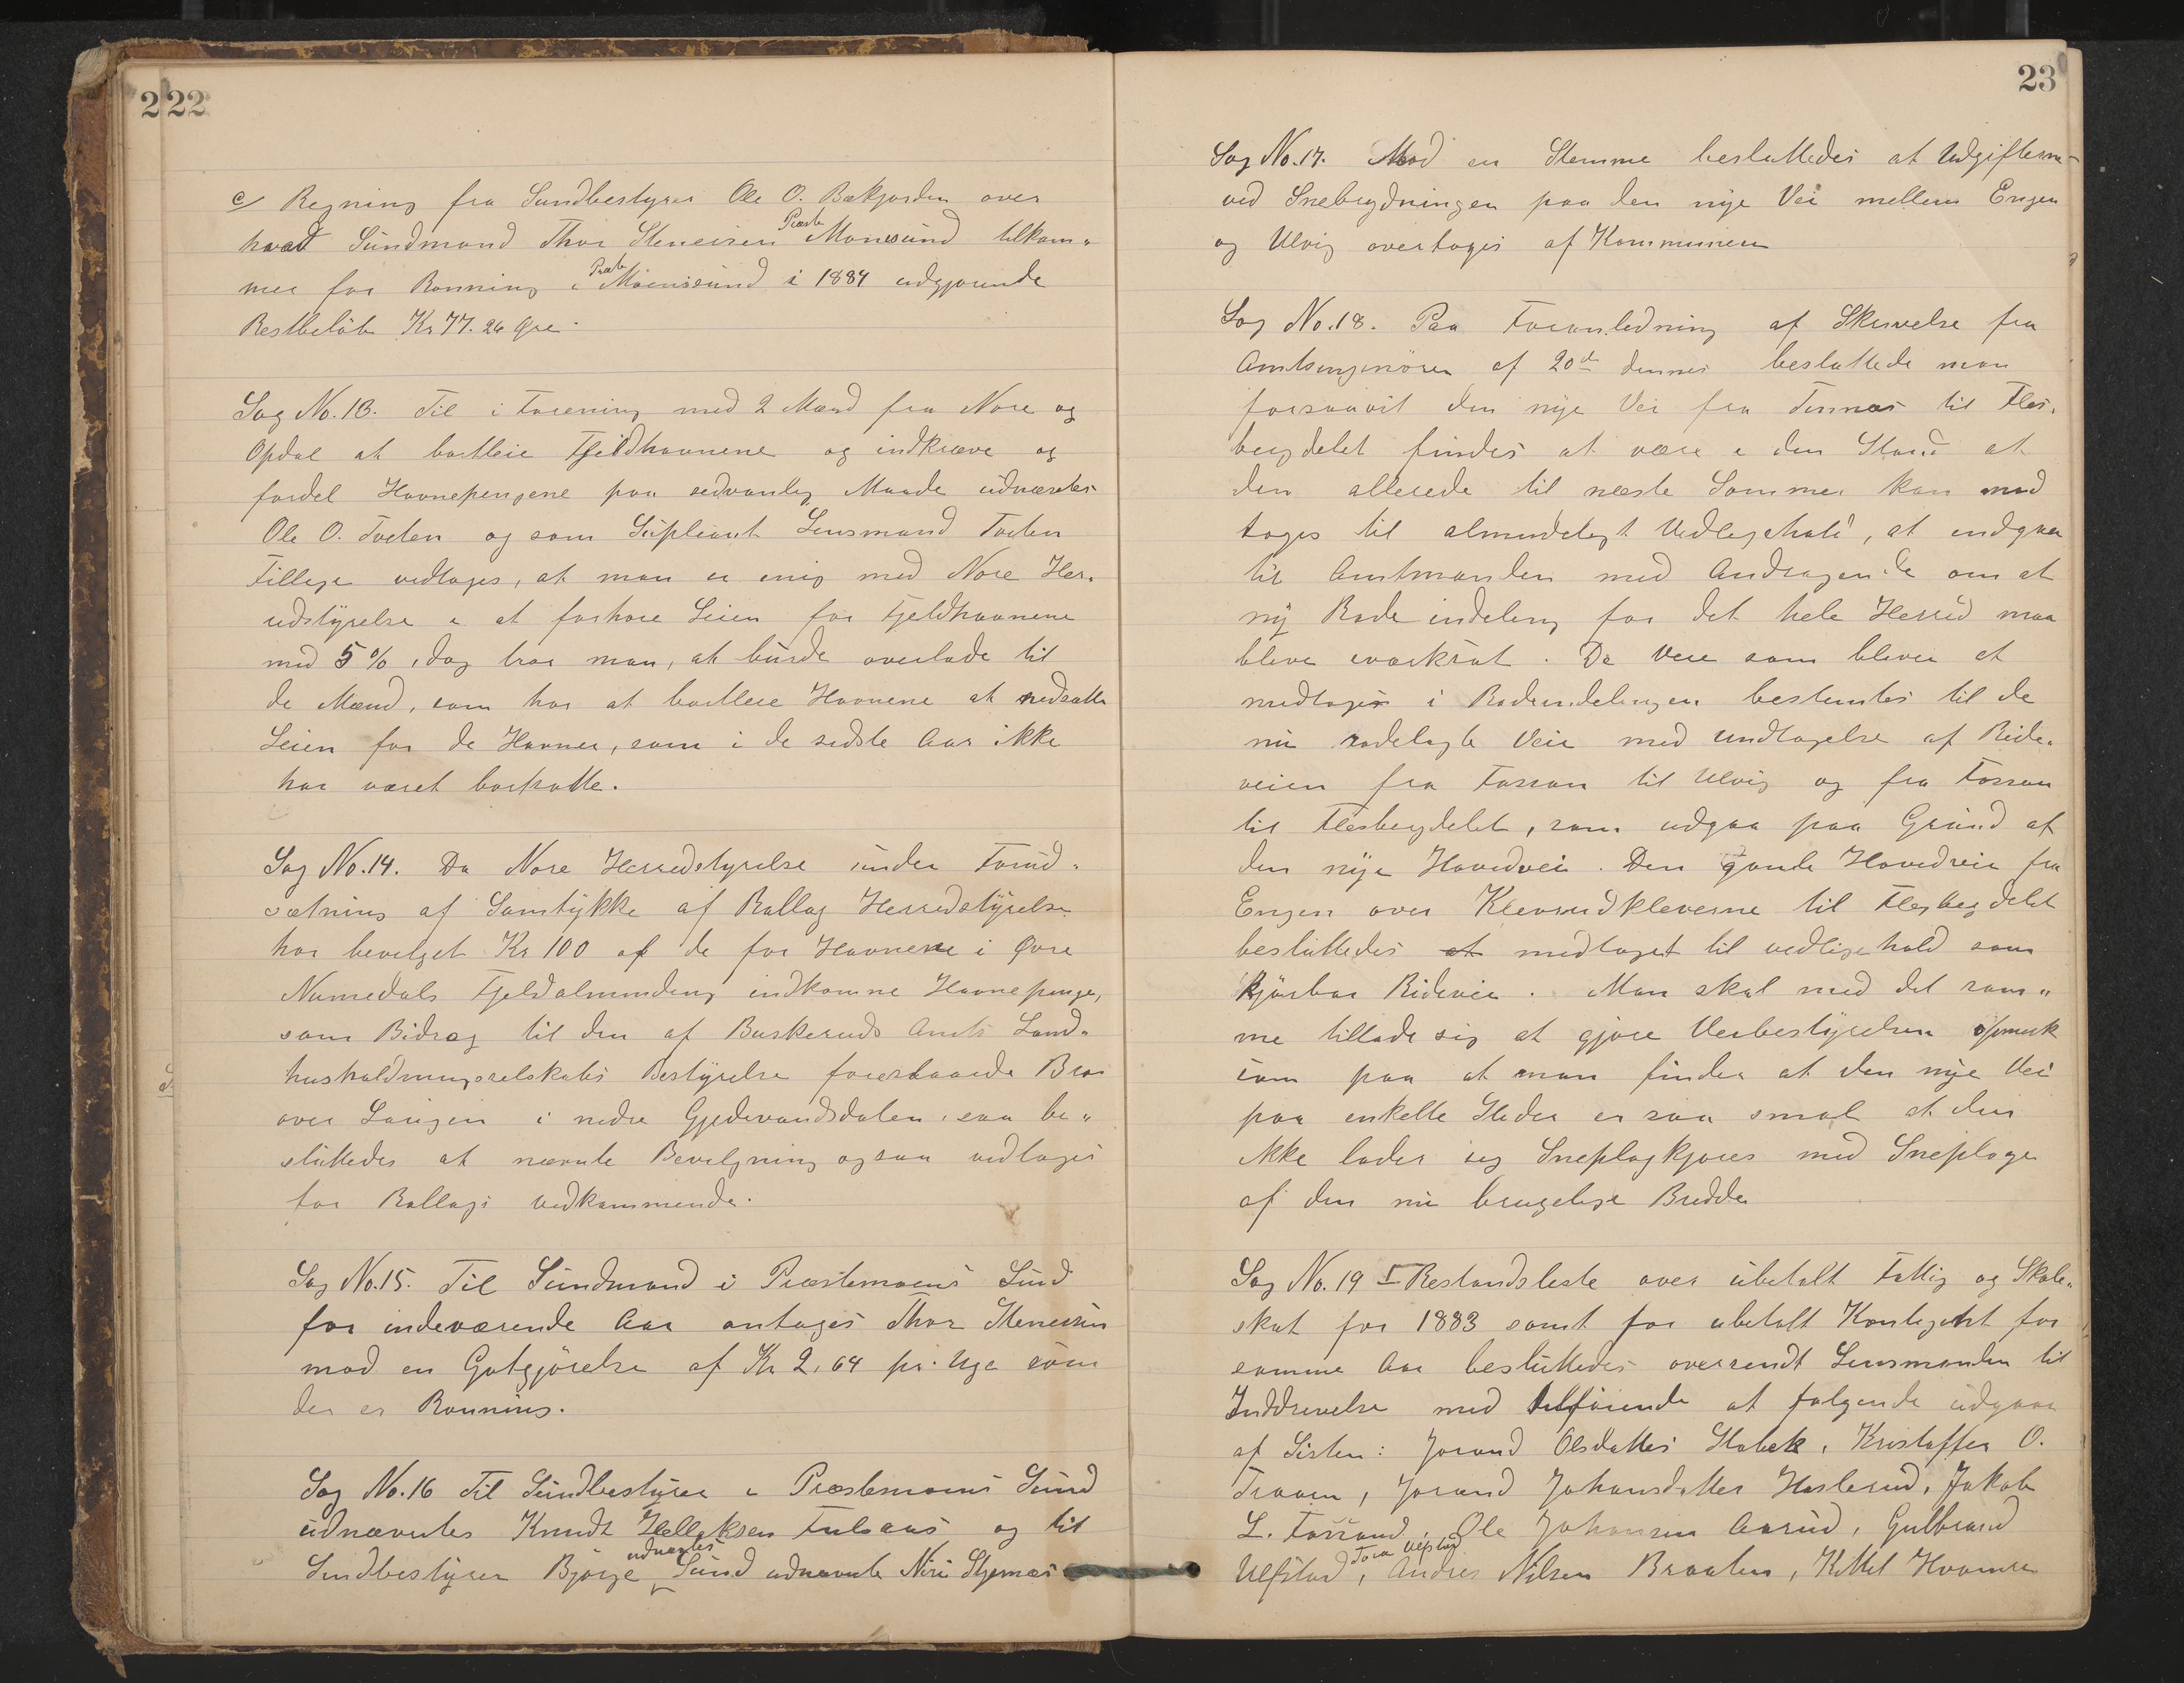 222
c/ Regning fra Sundbestyrer Ole O. Bækjorden over
hvad Sundmand Thor Steneisen Præste Moensund tilkom-
mer for Roening i Præste Moensund i 1884 udgjørende
Restbeløb Kr 77. 26 Øre.
Sag No. 13. Til i Forening med 2 Mænd fra Nore og
Opdal at bortleie Fjeldhavnene og indkræve og
fordel Havnepengene paa sedvanlig Maade udnævntes
Ole O. Tveten og som Supleant Lensmand Tveten
Tillige vedtoges, at man er enig med Nore Her-
redstyrelse i at forhøie Leien for Fjeldhavnene
med 5 %, dog tror man, at burde overlade til
de Mænd, som har at bortleie Havnene at nedsætte
Leien for de Havner, som i de sidste Aar ikke
har været bortsatte.
Sag No. 14. Da Nore Herredstyrelse under Forud-
sætning af Samtykke af Rollag Herredstyrelse
har bevilget Kr 100 af de for Havnene i Øvre
Numedals Fjeldalmending indkomne Havnepenge,
som Bidrag til den af Buskeruds Amts Land-
husholdningsselskabs Bestyrelse foreslaaede Bro
over Laagen i nedre Gjedevandsdalen, saa be-
sluttedes at nævnte Bevilgning ogsaa vedtages
for Rollags vedkommende.
Sag No. 15. Til Sundmand i Præstemoens Sund
for indeværende Aar antages Thor Steneisen
mod en Godtgjørelse af Kr 2,64 pr. Uge som
der er Roening.
Sag No. 16 Til Sundbestyrer i Præstemoens Sund
udnævntes Knudt Helleksen Fulsaas og til
Sundbestyrer Bjørge Sund udnævnte Niri Stjernæs
udnævntes
23
Sag No. 17. Mod en Stemme besluttedes at Udgifterne
ved Snebrydningen paa den nye Vei mellem Engen
og Ulvig overtages af Kommunen
Sag No. 18. Paa Foranledning af Skrivelse fra
Amtsingeniøren af 20de dennes besluttede man
forsaavit den nye Vei fra Tunnas til Fles-
bergdelet findes at være i den Stand at
den allerede til næste Sommer kan mod
tages til almindeligt Vedligehold, at indgaa
til Amtmanden med Andragende om at
ny Rodeindeling for det hele Herred maa
blive iværksat. De Veie som bliver at
medtages i Rodeindelingen bestemtes til de
nu rodelagte Veie med Undtagelse af Ride-
veien fra Fossan til Ulvig og fra Fossan
til Flesbergdelet, som udgaa paa Grund af
den nye Hovedvei. Den gamle Hovedveie fra
Engen over Klevrudkleverne til Flesbergdelet
besluttedes at medtaget til vedligehold som
kjørbar Rideveie. Man skal med det sam-
me tillade sig at gjøre Veibestyrelsen opmærk
som paa at man finder at den nye Vei
paa enkelte Steder er saa smal at den
ikke lader sig Sneplogkjøres med Sneploge
af den nu brugelige Bredde
Sag No. 19 I Restandsliste over ubetalt Fattig og Skole-
skat for 1883 samt for ubetalt Kontigent for
samme Aar besluttedes oversendt Lensmanden til
Inddrivelse med tilføiende at følgende udgaar
af Listen: Jorand Olsdatter Stabæk, Kristoffer O.
Traaen, Jorand Johansdatter Haslerud, Jakob
L. Fossand, Ole Johansen Aasrud, Gulbrand
Ulfstad, Tora Ulfstad, Andres Nilsen Braaten, Kittil Hvamsen